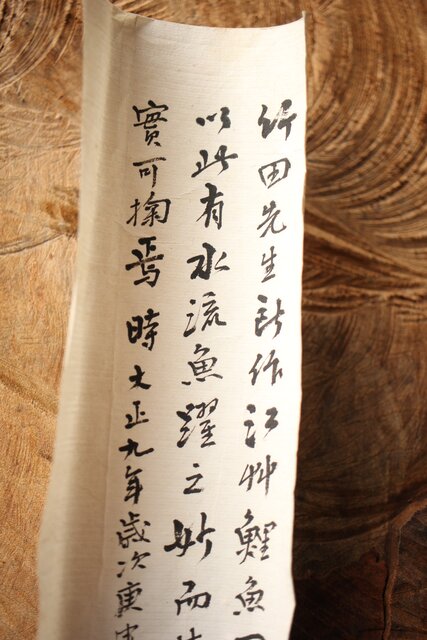 竹田先生所作江艸鯉魚
以此有水流魚躍之妙而
實可掬焉時大正九年歲次庚申